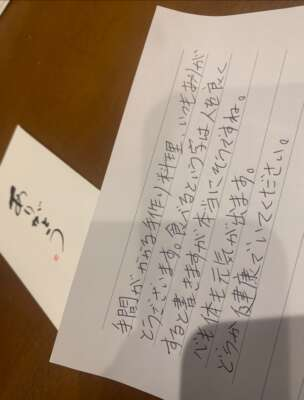 手間がかかる手作り料理 いつもありが
とうございます。食べるという字は人を良く
すると書きますが本当にそうですね。
心も体も元気が出ます。
どうか健康でいてください。
ありがとう